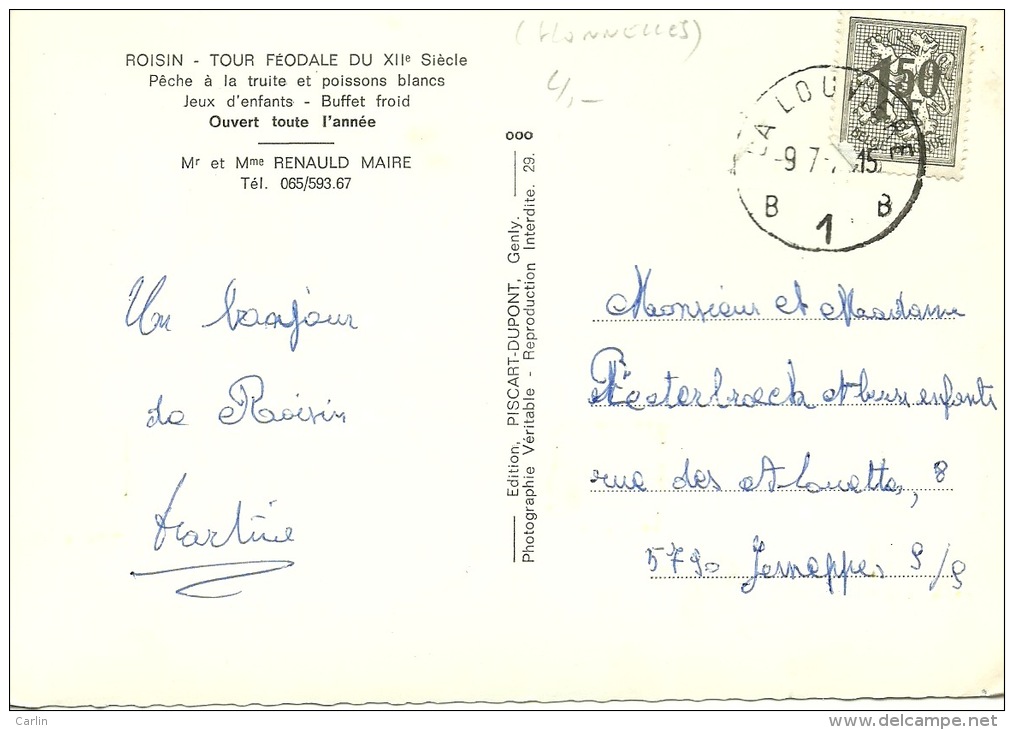 (HONNELLES)
4,-
ROISIN - TOUR FÉODALE DU XIIe Siècle
Pêche à la truite et poissons blancs
Jeux d'enfants - Buffet froid
Ouvert toute l'année
Mr et Mme RENAULD MAIRE
Tél. 065/593.67
Un bonjour
de Roisin
Martine
ooo
Edition, PISCART-DUPONT, Genly.
Photographie Véritable - Reproduction Interdite. 29.
1,50
F
LA LOUVIERE
-9 7- 15
B 1 B
Monsieur et Madame
et leurs enfants
rue des Alouettes, 8
5790 Jemeppe s/s
Carlin
www.delcampe.net